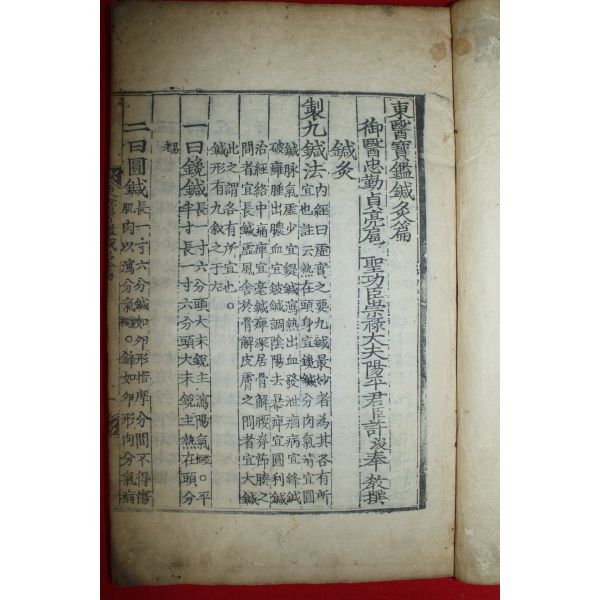 東醫寶鑑鍼灸篇
御醫忠勤貞亮扈聖功臣崇祿大夫陽平君臣許浚奉敎撰
鍼灸
製九鍼法
內經曰虛實之要九鍼最妙者為其各有所
宜也註云熱在頭身宜鑱鍼分肉氣滿宜圓
鍼脉氣虛少宜鍉鍼瀉熱出血發泄痼病宜鋒鍼
破癰腫出膿血宜鈹鍼調陰陽去暴痺宜圓利鍼
治經絡中痛痺宜毫鍼痺深居骨解腰脊節腠之
間者宜長鍼虛風舍於骨解皮膚之間者宜大鍼
此之謂各有所宜也。
鍼形有九叙之于左
一曰鑱鍼
長一寸六分頭大末銳主瀉陽氣。平
半寸長一寸六分頭大末銳主熱在頭分
二曰圓鍼
長一寸六分鍼如卵形揩摩分間不得傷
肌肉以瀉分氣。鋒如卵形肉分氣病